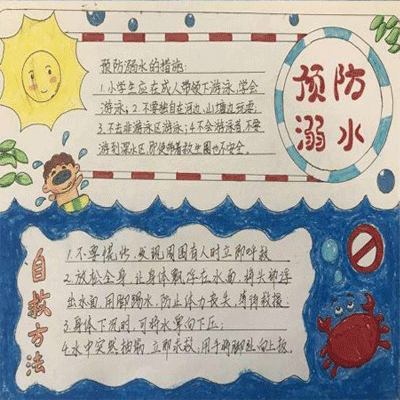 预防溺水
预防溺水的措施:
1.小学生应在成人带领下游泳,学会
游泳;2.不要独自在河边、山塘边玩耍;
3.不去非游泳区游泳;4.不会游泳者,不要
游到深水区,即使带着救生圈也不安全。
自救方法
1.不要慌张,发现周围有人时立即呼救
2.放松全身,让身体飘浮在水面,将头部浮
出水面,用脚踢水,防止体力丧失,等待救援。
3.身体下沉时,可将水掌向下压;
4.水中突然抽筋,立即求救,用手将脚趾向上扳。